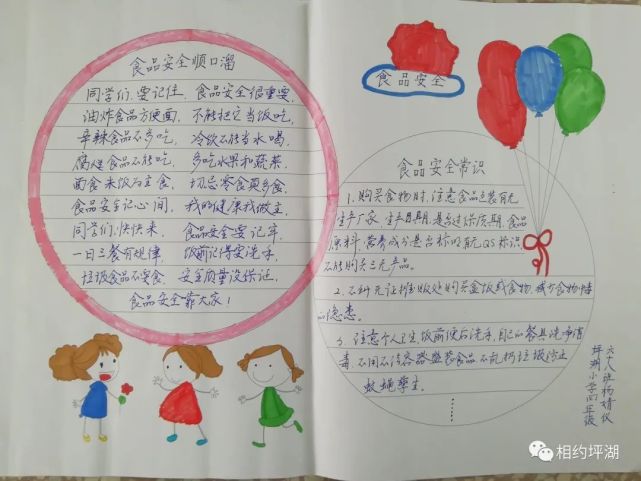 食品安全顺口溜
同学们,要记住, 食品安全很重要,
油炸食品方便面, 不能把它当饭吃,
辛辣食品不多吃, 冷饮不能当水喝,
腐烂食品不能吃, 多吃水果和蔬菜,
面食米饭为主食, 切忌零食莫多食,
食品安全记心间, 我的健康我做主,
同学们,快快来, 食品安全要记牢,
一日三餐有规律, 饭前记得要洗手,
垃圾食品不要食, 安全质量没保证,
食品安全靠大家!
食品安全
食品安全常识
1.购买食物时,注意食品包装有无
生产厂家,生产日期,是否过保质期,食品
原料,营养成分是否标明有无QS标识,
不能购买三无产品。
2.不到无证摊贩处购买盒饭或食物,减少食物中毒
的隐患。
3.注意个人卫生,饭前便后洗手,自己的餐具洗净消
毒,不用不洁容器盛装食品,不乱扔垃圾防止
蚊蝇孳生。
坪湖小学四年级
六十八班杨婧仪
相约坪湖